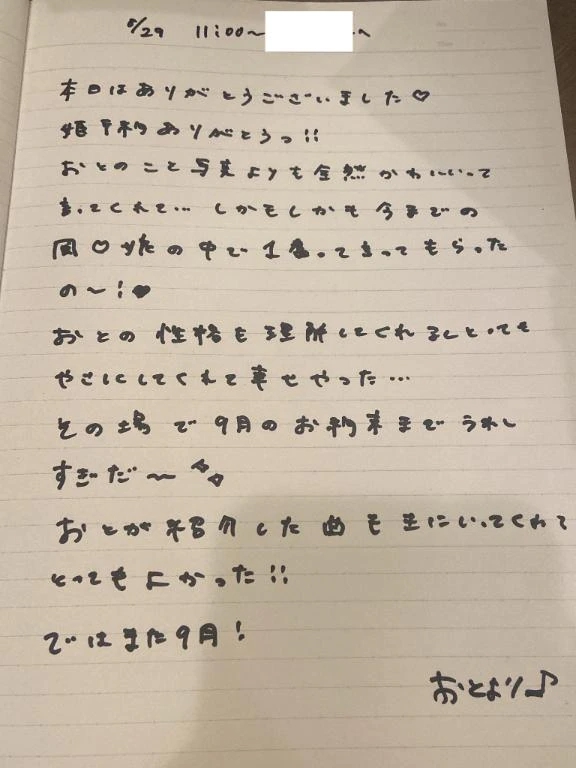 8/29 11:00〜 へ
本日はありがとうございました♡
姫予約ありがとうっ!!
おとのこと写真よりも全然かわいいって
言ってくれて… しかもしかも今までの
同♡娘の中で1番って言ってもらった
の〜!♥
おとの性格も理解してくれるしとっても
やさしくしてくれて幸せやった…
その場で9月のお約束までうれし
すぎだ〜
おとが紹介した曲も気にいってくれて
とってもよかった!!
ではまた9月!
おとより♪